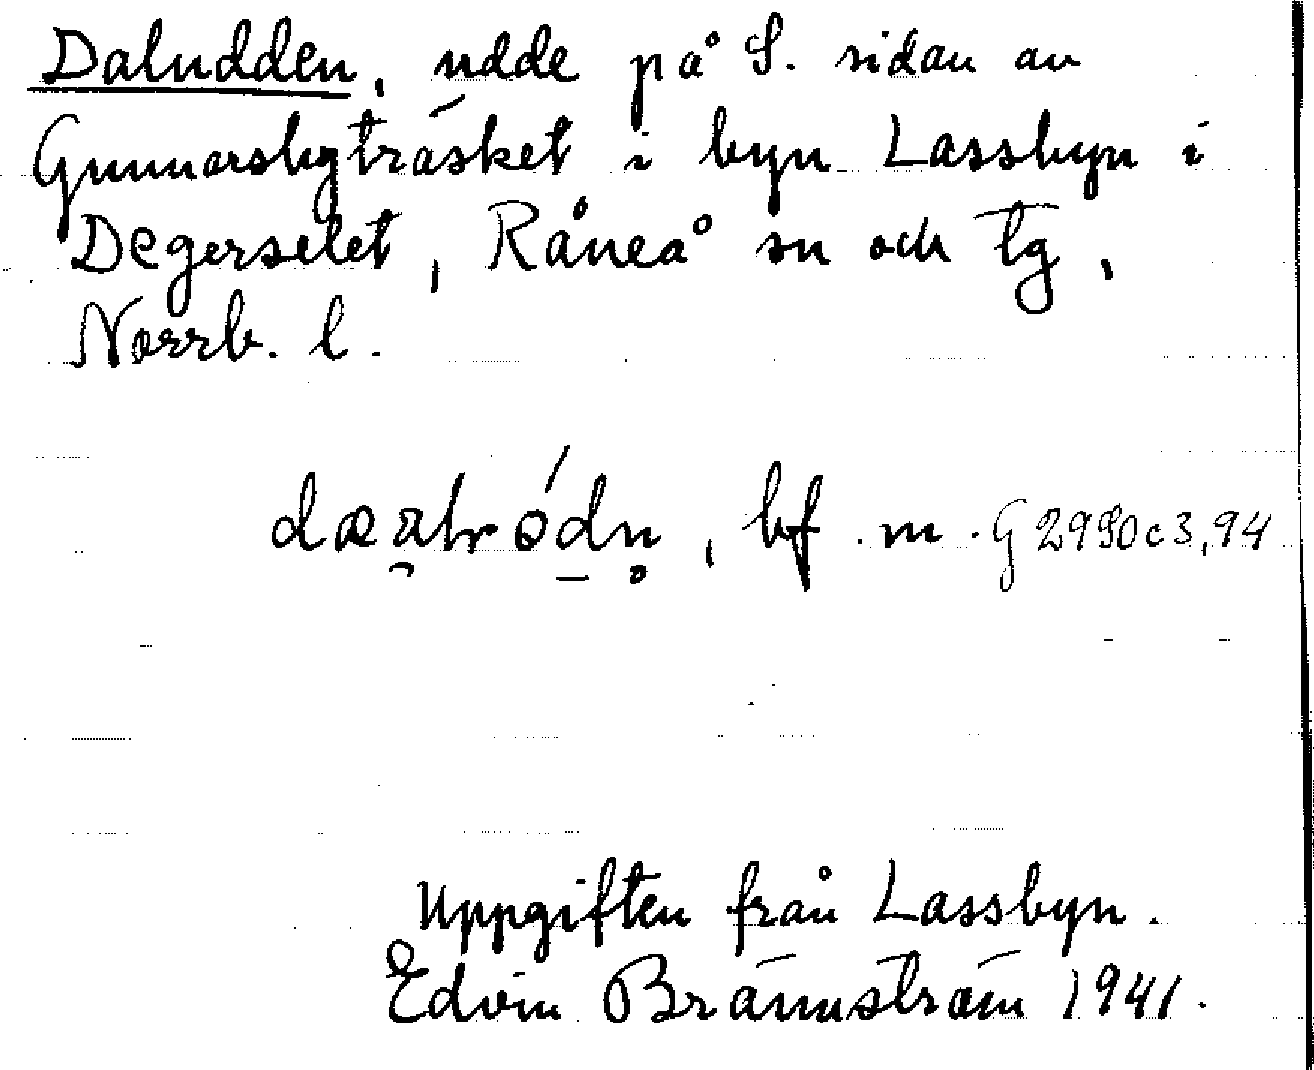 Daludden, udde på S. sidan av
Gunnarsbyträsket i byn Lassbyn i
Degerselet, Råneå sn och tg,
Norrb. l.
bf. m. G 2990 c 3, 94
Uppgiften från Lassbyn.
Edvin Brännström 1941.